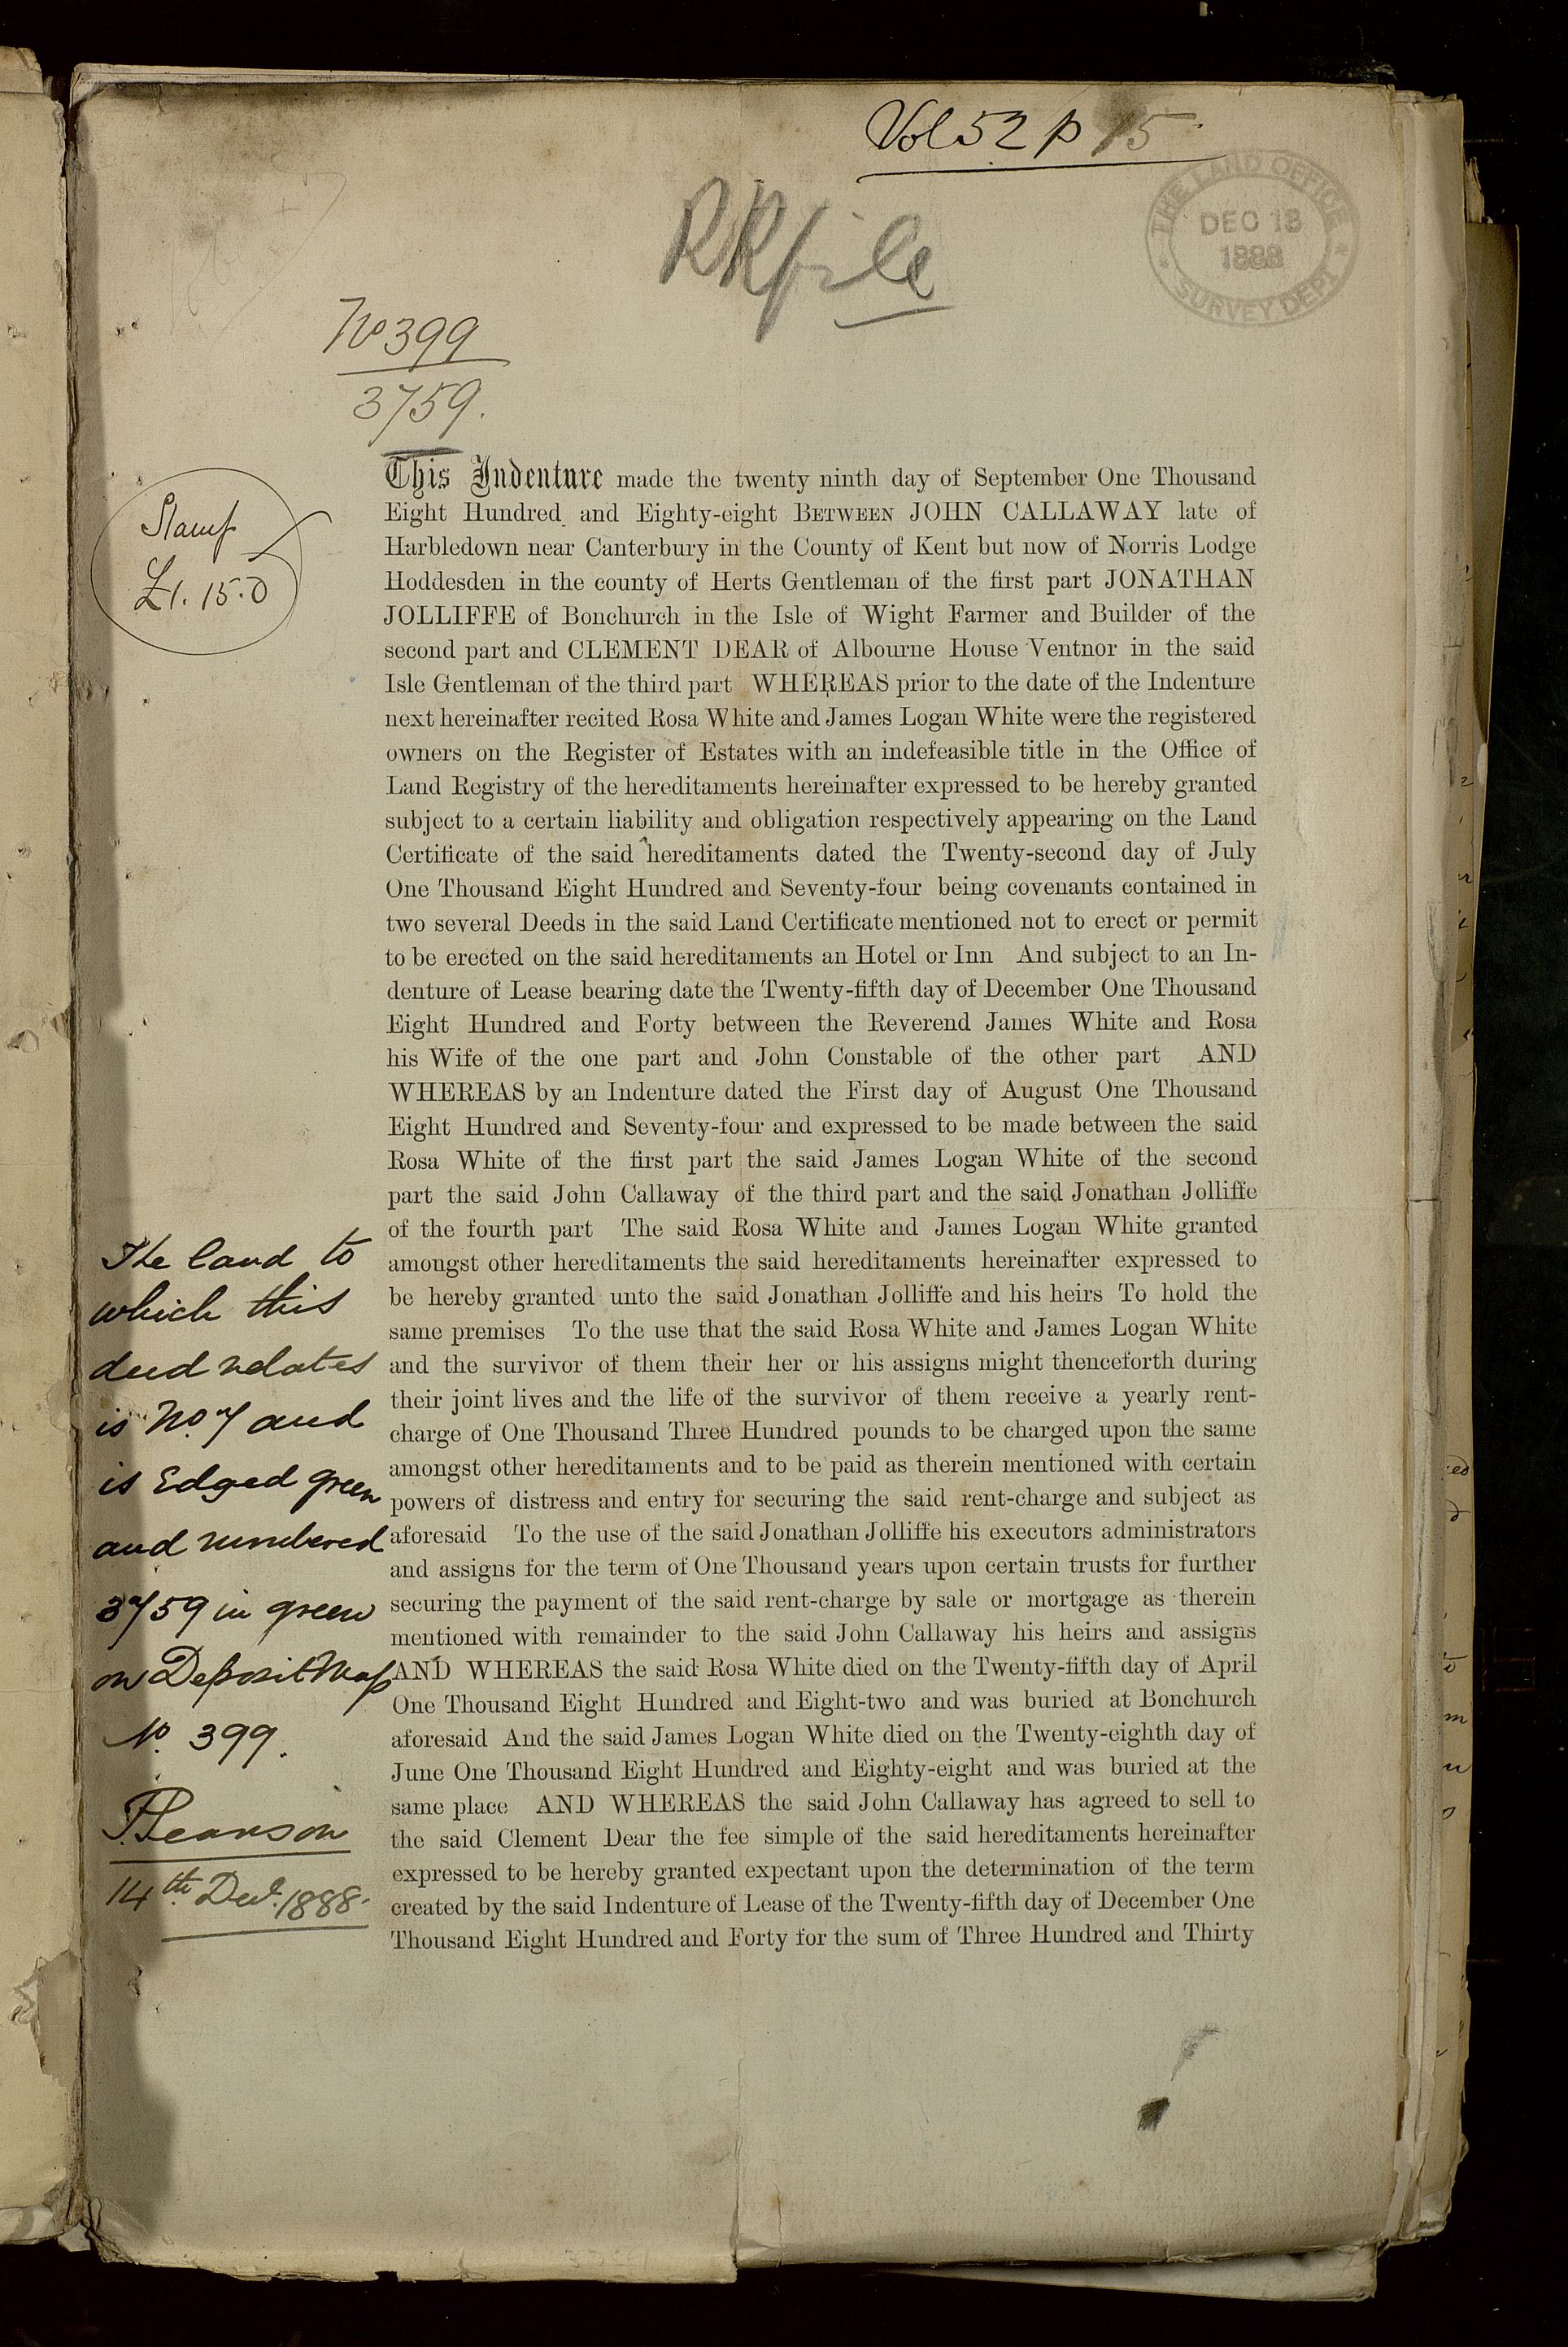 Vol 52 p 15
THE LAND OFFICE
DEC 18
1888
SURVEY DEPT
RR file
No 399
3759.
Stamp
£1. 15. 0
This Indenture made the twenty ninth day of September One Thousand
Eight Hundred and Eighty-eight BETWEEN JOHN CALLAWAY late of
Harbledown near Canterbury in the County of Kent but now of Norris Lodge
Hoddesden in the county of Herts Gentleman of the first part JONATHAN
JOLLIFFE of Bonchurch in the Isle of Wight Farmer and Builder of the
second part and CLEMENT DEAR of Albourne House Ventnor in the said
Isle Gentleman of the third part WHEREAS prior to the date of the Indenture
next hereinafter recited Rosa White and James Logan White were the registered
owners on the Register of Estates with an indefeasible title in the Office of
Land Registry of the hereditaments hereinafter expressed to be hereby granted
subject to a certain liability and obligation respectively appearing on the Land
Certificate of the said hereditaments dated the Twenty-second day of July
One Thousand Eight Hundred and Seventy-four being covenants contained in
two several Deeds in the said Land Certificate mentioned not to erect or permit
to be erected on the said hereditaments an Hotel or Inn And subject to an In-
denture of Lease bearing date the Twenty-fifth day of December One Thousand
Eight Hundred and Forty between the Reverend James White and Rosa
his Wife of the one part and John Constable of the other part AND
WHEREAS by an Indenture dated the First day of August One Thousand
Eight Hundred and Seventy-four and expressed to be made between the said
Rosa White of the first part the said James Logan White of the second
part the said John Callaway of the third part and the said Jonathan Jolliffe
of the fourth part The said Rosa White and James Logan White granted
amongst other hereditaments the said hereditaments hereinafter expressed to
be hereby granted unto the said Jonathan Jolliffe and his heirs To hold the
same premises To the use that the said Rosa White and James Logan White
and the survivor of them their her or his assigns might thenceforth during
their joint lives and the life of the survivor of them receive a yearly rent-
charge of One Thousand Three Hundred pounds to be charged upon the same
amongst other hereditaments and to be paid as therein mentioned with certain
powers of distress and entry for securing the said rent-charge and subject as
aforesaid To the use of the said Jonathan Jolliffe his executors administrators
and assigns for the term of One Thousand years upon certain trusts for further
securing the payment of the said rent-charge by sale or mortgage as therein
mentioned with remainder to the said John Callaway his heirs and assigns
AND WHEREAS the said Rosa White died on the Twenty-fifth day of April
One Thousand Eight Hundred and Eight-two and was buried at Bonchurch
aforesaid And the said James Logan White died on the Twenty-eighth day of
June One Thousand Eight Hundred and Eighty-eight and was buried at the
same place AND WHEREAS the said John Callaway has agreed to sell to
the said Clement Dear the fee simple of the said hereditaments hereinafter
expressed to be hereby granted expectant upon the determination of the term
created by the said Indenture of Lease of the Twenty-fifth day of December One
Thousand Eight Hundred and Forty for the sum of Three Hundred and Thirty
The land to
which this
deed relates
is No. 7 and
is Edged green
and numbered
3759 in green
on Deposit Map
No. 399.
Pearson
14th Decr. 1888.